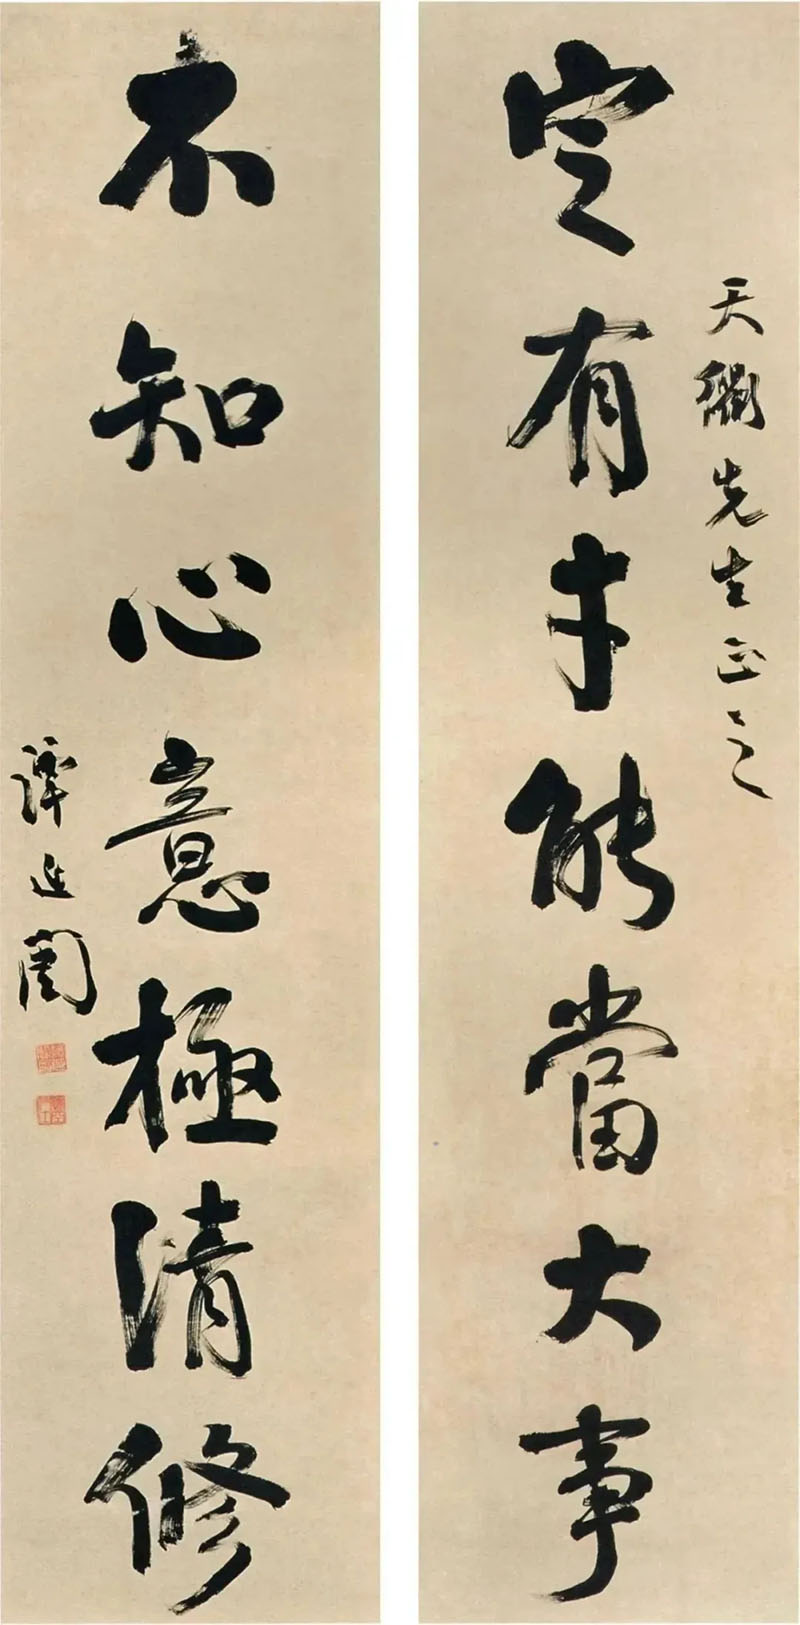 天衢先生正之
定有才能當大事
不知心意極清修
譚延闓